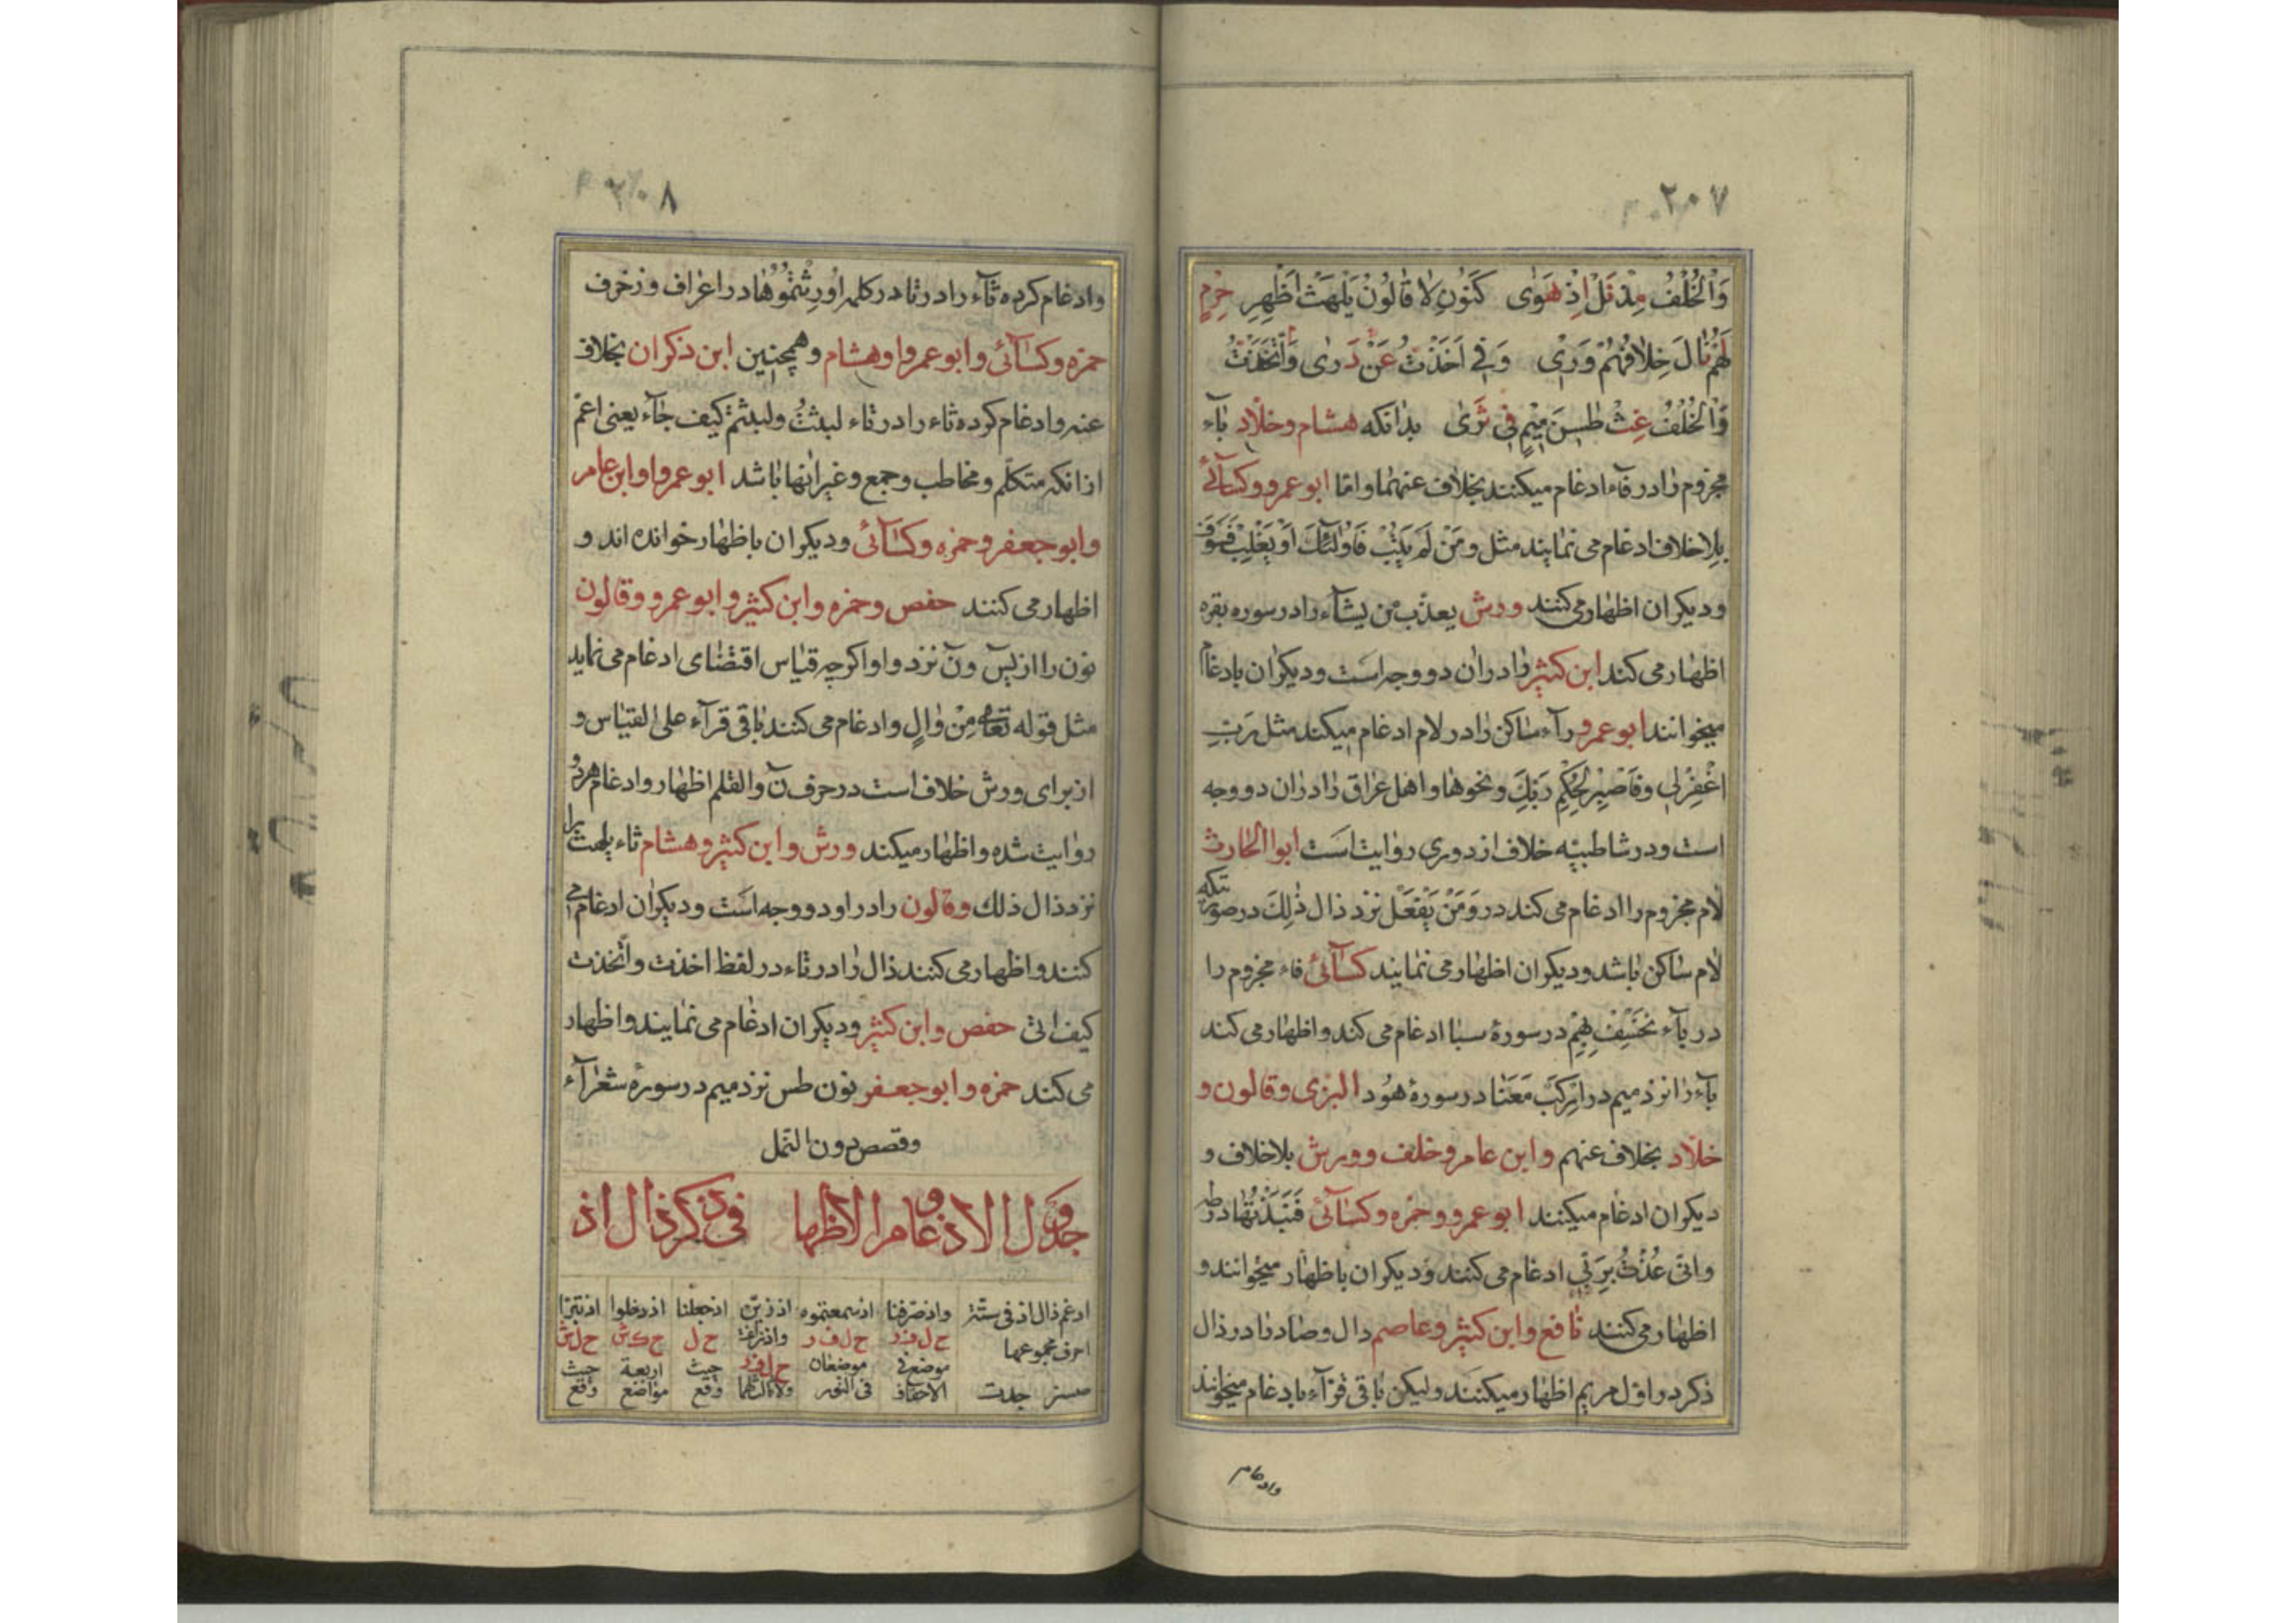 ۲۰۷
وَالْخُلْفُ مِزْ قَبْلُ اِذْ هَوٰى كَنُونِ لا قالُونُ يَلْهَثْ اَظْهِرِ حِرْمِ
لَهُمْ نالَ خِلافُهُمْ وَرٰى وَفي اَخَذْتُ عَنْ دَرٰى وَاتَّخَذْتُ
وَالْخُلْفُ غِثْ طٰسٓنَ مِيْمٍ فِي ثَرٰى بدانكه هشام وخلّاد باء
مجزوم را در فاء ادغام ميكنند بخلاف عنهما وامّا ابو عمرو وكسآئي
بلا خلاف ادغام مى نمايند مثل ومَنْ لَمْ يَتُبْ فَاُولٰٓئِكَ اَوْ يَغْلِبْ فَسَوْفَ
وديكران اظهار مى كنند ورش يعذّب من يشآء را در سوره بقره
اظهار مى كند ابن كثير را در ان دو وجه است وديكران بادغام
ميخوانند ابو عمرو رآء ساكن را در لام ادغام ميكند مثل رَبِّ
اغْفِرْلي وفَاصْبِرْ لِحُكْمِ رَبِّكَ ونحوها واهل عراق را در ان دو وجه
است ودر شاطبيّه خلاف از دورى روايت است ابو الحارث
لام مجزوم را ادغام مى كند در وَمَنْ يَفْعَلْ نزد ذال ذٰلِكَ در صورتيكه
لام ساكن باشد وديكران اظهار مى نمايند كسآئي فاء مجزوم را
در بآء نَخْسِفْ بِهِمْ در سورهٔ سبا ادغام مى كند واظهار مى كند
بآء را نزد ميم در اِرْكَبْ مَعَنا در سورهٔ هُود البزى وقالون و
خلّاد بخلاف عنهم وابن عامر وخلف وورش بلا خلاف و
ديكران ادغام ميكنند ابو عمرو وحمزه وكسآئي فَنَبَذْتُها در طه
وانّى عُذْتُ بِرَبّي ادغام مى كنند وديكران باظهار ميخوانند و
اظهار مى كنند نافع وابن كثير وعاصم دال وصاد را در ذال
ذكر در اوّل مريم اظهار ميكنند وليكن باقى قرآء بادغام ميخوانند
وادغام
۲۰۸
وادغام كرده ثآء را در تا در كلمه اُورِثْتُمُوها در اعراف وزخرف
حمزه وكسآئي وابو عمرو او هشام وهمچنين ابن ذكوان بخلاف
عنه وادغام كرده ثاء را در تاء لبثتُ ولبثتم كيف جآء يعنى اعمّ
از انكه متكلّم ومخاطب وجمع وغير انها باشد ابو عمرو او ابن عامر
وابو جعفر وحمزه وكسآئي وديكران باظهار خوانده اند و
اظهار مى كنند حفص وحمزه وابن كثير وابو عمرو وقالون
نون را از يسٓ ونٓ نزد واو اكرچه قياس اقتضاى ادغام مى نمايد
مثل قوله تعالى مِنْ والٍ وادغام مى كنند باقى قرآء على القياس و
از براى ورش خلاف است در حرف نٓ والقلم اظهار وادغام هردو
روايت شده واظهار ميكند ورش وابن كثير وهشام ثاء يلهث را
نزد ذال ذلك وقالون را در او دو وجه است وديكران ادغام مى
كنند واظهار مى كنند ذال را در تاء در لفظ اخذت واتّخذت
كيف اتى حفص وابن كثير وديكران ادغام مى نمايند واظهار
مى كند حمزه وابو جعفر نون طس نزد ميم در سورهٔ شعرآء
وقصص دون النّمل
جدول الادغام والاظهار فى ذكر ذال اذ
ادغم ذال اذ فى ستّة احرف مجموعها صسز جدت
واذ صرفنا ح ل ف ر موضع فى الاحقاف
اذ سمعتموه ح ل ف ر موضعان فى النور
اذ زيّن واذ زاغت ح ل ف ر
اذ جعلنا ح ل حيث وقع
اذ دخلوا اربعة مواضع
اذ تبرّا حيث وقع